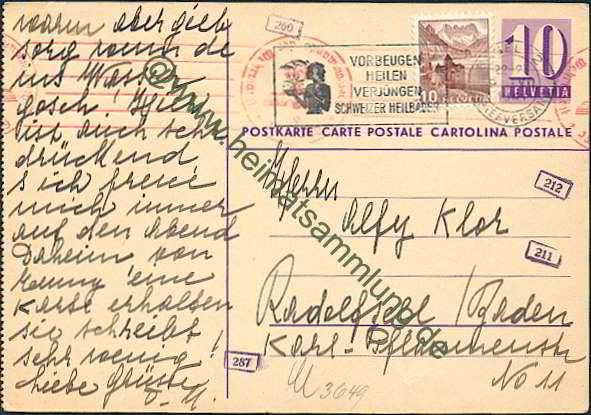 warm aber gieb
sorg wenn du
ins Wasser
gosch, Heil
ist auch sehr
drückend,
s ich freue
mich immer
auf den Abend
Daheim von
eine
Karte erhalten
sie schreibt
sehr wenig!
liebe Grüsse
260
VORBEUGEN
HEILEN
VERJÜNGEN
SCHWEIZER HEILBÄDER
10 HELVETIA
10
HELVETIA
POSTKARTE CARTE POSTALE CARTOLINA POSTALE
Herrn
Alfy Klor
Radolfzell / Baden
No 11
212
211
287
3649
@www.heimatsammlung.de